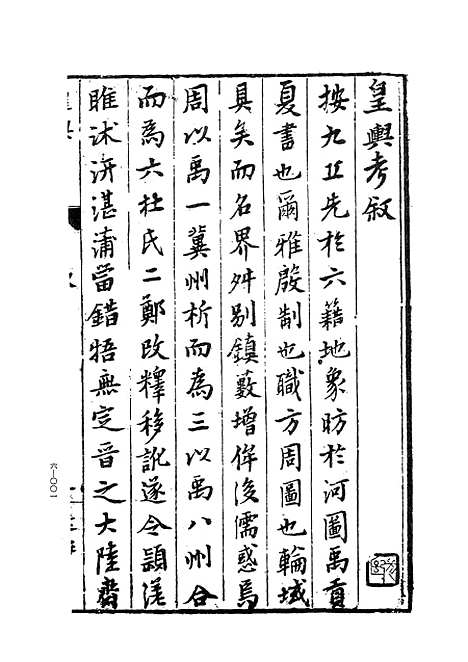 皇輿考敘
按九丘先於六籍地象昉於河圖禹貢
夏書也爾雅殷制也職方周圖也輪域
具矣而名界舛別鎮藪增侔後儒惑焉
周以禹一冀州析而為三以禹八州合
而為六杜氏二鄭改釋移訛遂令潁漢
睢沭汧湛蒲當錯牾無定晉之大陸齊
六一〇〇一